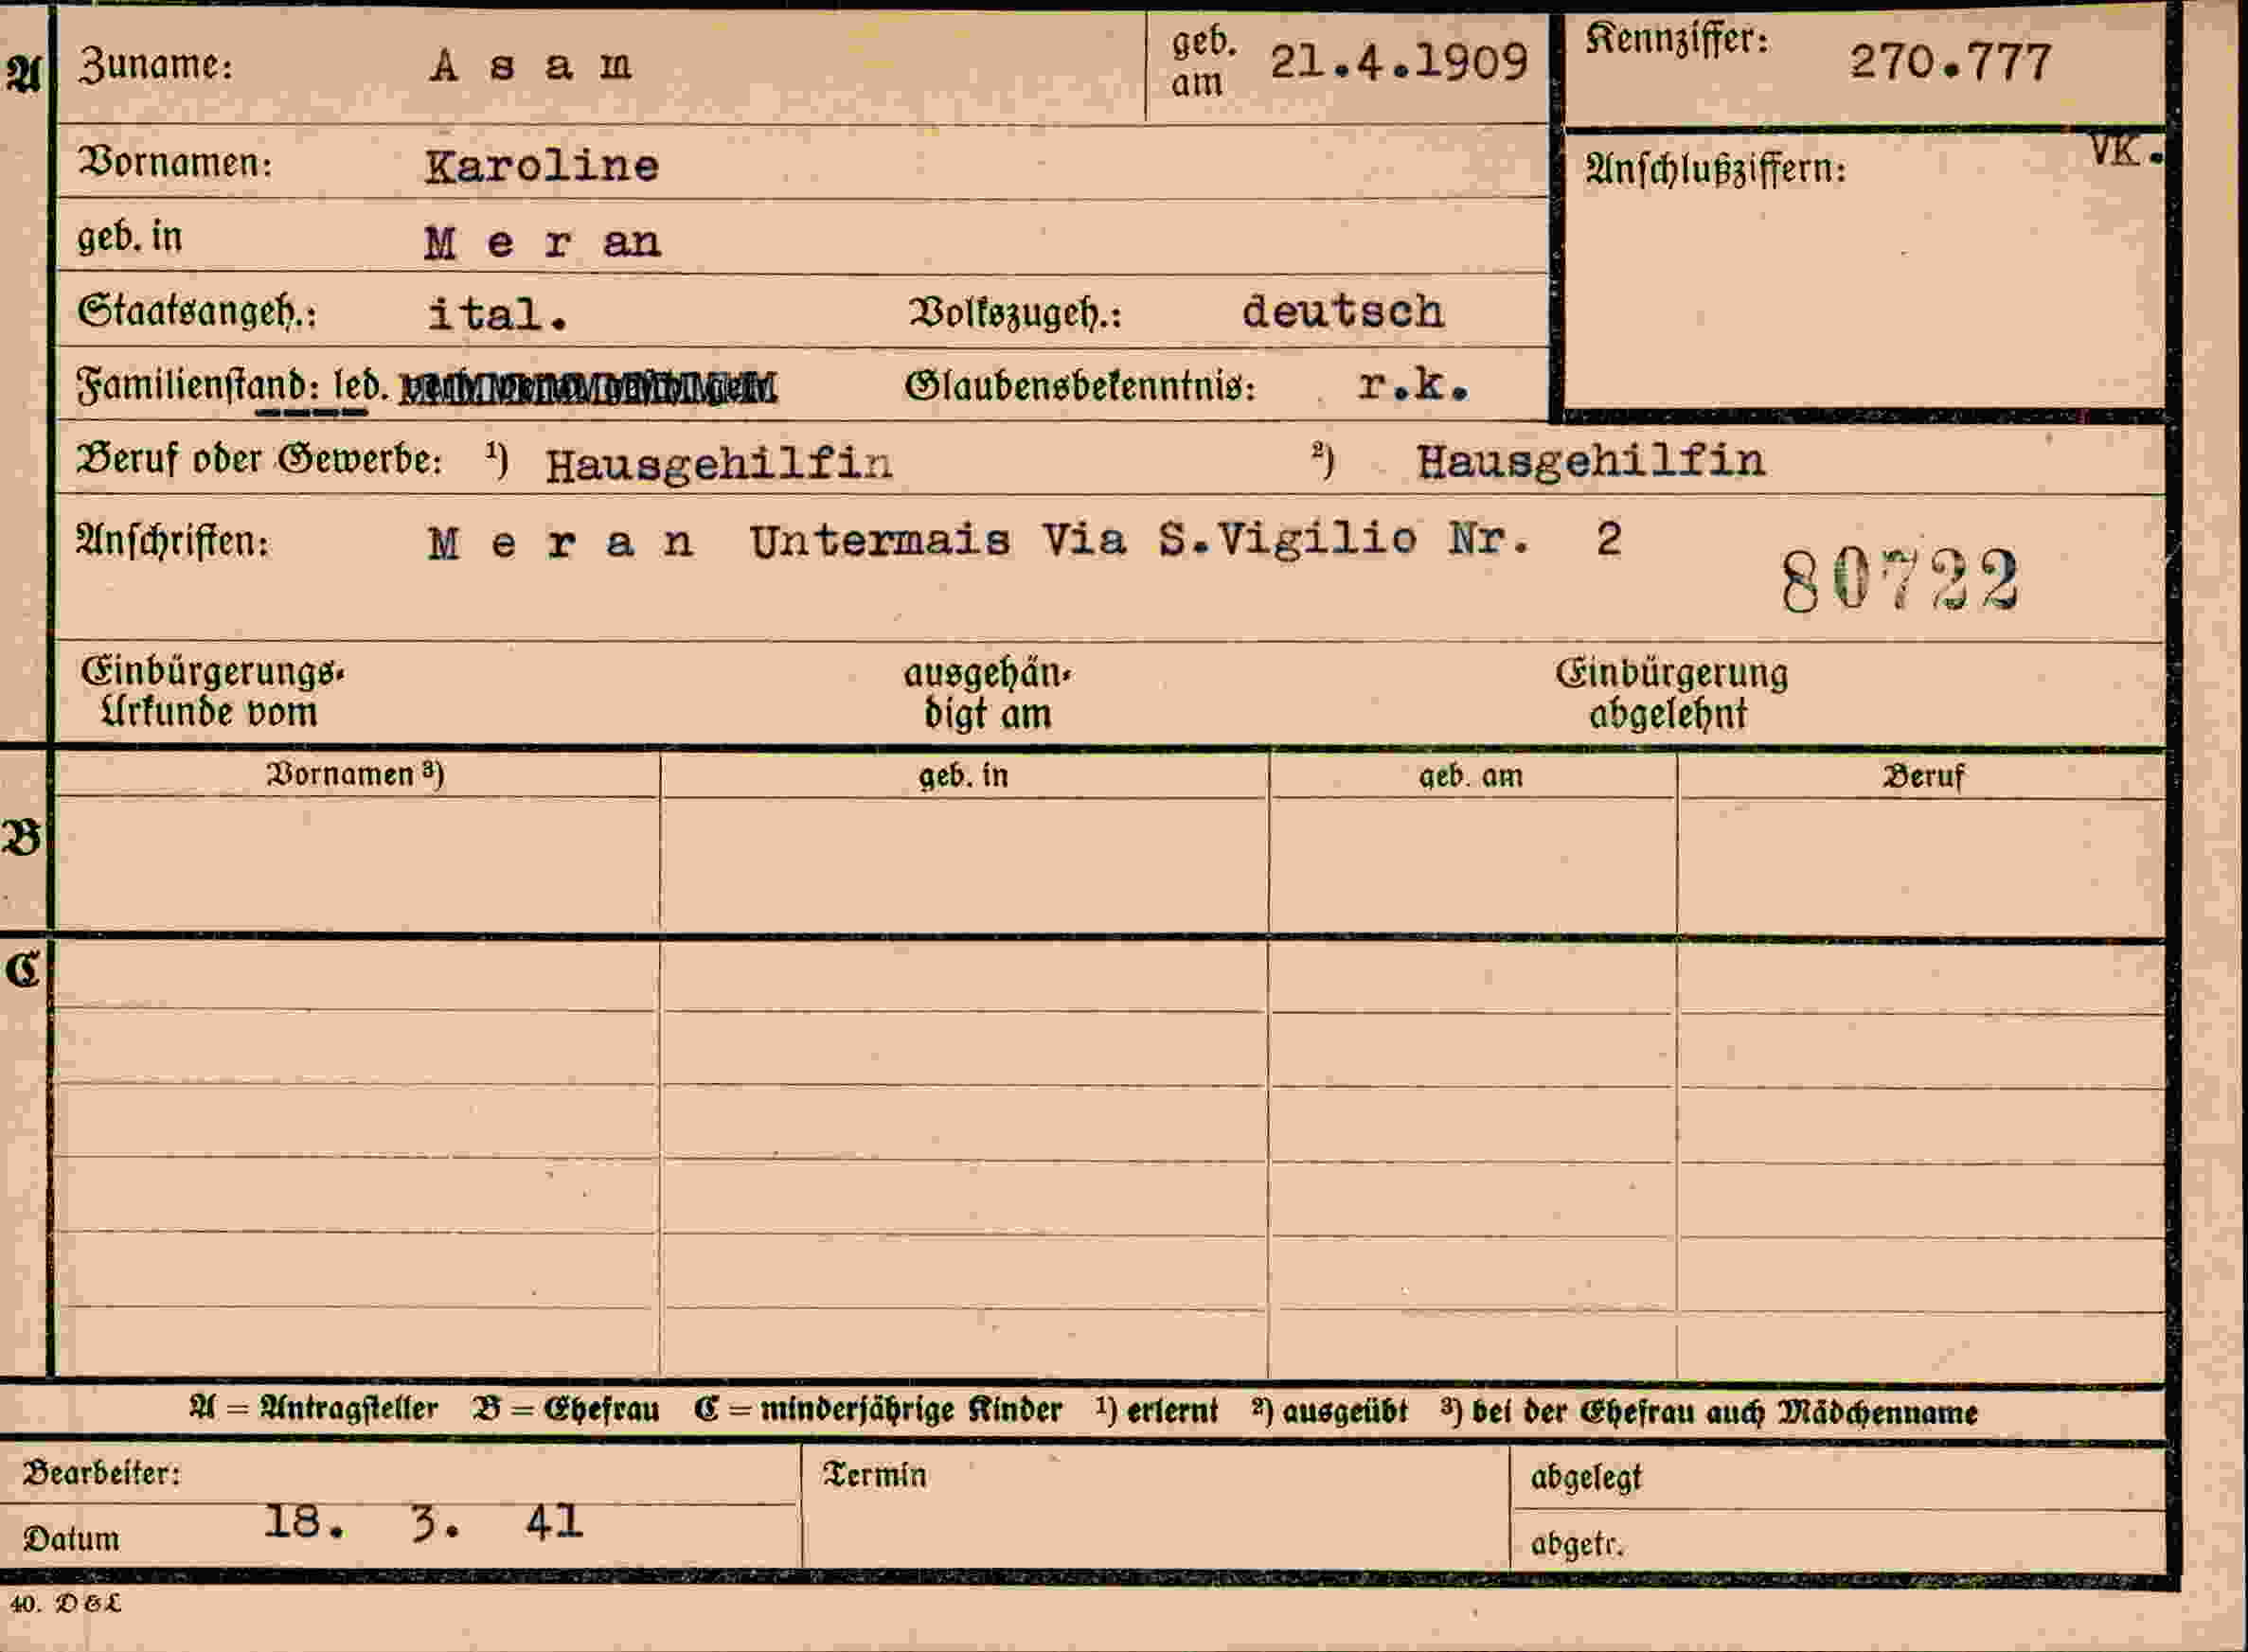 A Zuname: A s a m geb. am 21.4.1909 Kennziffer: 270.777
Vornamen: Karoline Anschlußziffern: VK.
geb. in M e r an
Staatsangeh.: ital. Volkszugeh.: deutsch
Familienstand: led. Glaubensbekenntnis: r.k.
Beruf oder Gewerbe: ¹) Hausgehilfin ²) Hausgehilfin
Anschriften: M e r a n Untermais Via S.Vigilio Nr. 2
80722
Einbürgerungs- ausgehän- Einbürgerung
Urkunde vom digt am abgelehnt
Vornamen ³) geb. in geb. am Beruf
B
C
A = Antragsteller B = Ehefrau C = minderjährige Kinder ¹) erlernt ²) ausgeübt ³) bei der Ehefrau auch Mädchenname
Bearbeiter: Termin abgelegt
Datum 18. 3. 41 abgetr.
40. D&L